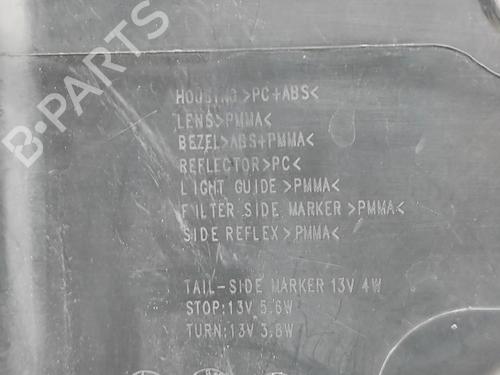 B-PARTS
HOUSING>PC+ABS<
LENS>PMMA<
BEZEL>ABS+PMMA<
REFLECTOR>PC<
LIGHT GUIDE>PMMA<
FILTER SIDE MARKER>PMMA<
SIDE REFLEX>PMMA<
TAIL-SIDE MARKER 13V 4W
STOP:13V 5.6W
TURN:13V 3.6W